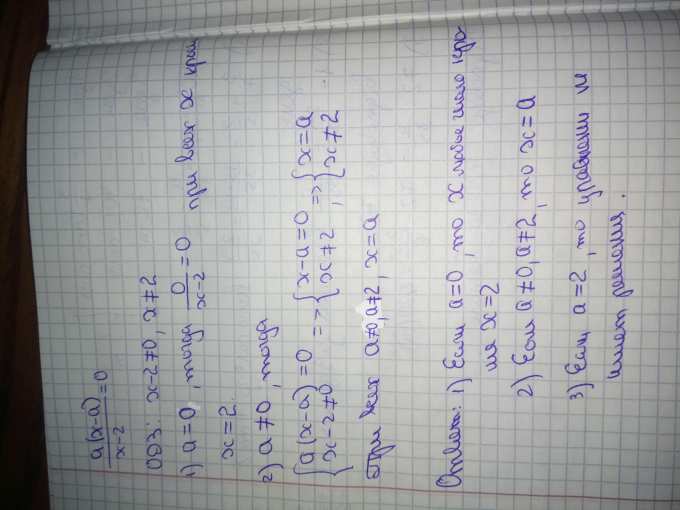 a(x-a)/x-2 = 0
ОДЗ: x-2≠0, x≠2
1) a=0, тогда 0/x-2 = 0 при всех x кроме
x=2.
2) a≠0, тогда
{ a(x-a)=0 => { x-a=0 => { x=a
{ x-2≠0 { x≠2 , { x≠2
При всех a≠0, a≠2, x=a
Ответ: 1) Если a=0, то x любое число кро-
ме x=2
2) Если a≠0, a≠2, то x=a
3) Если a=2, то уравнение не
имеет решения.